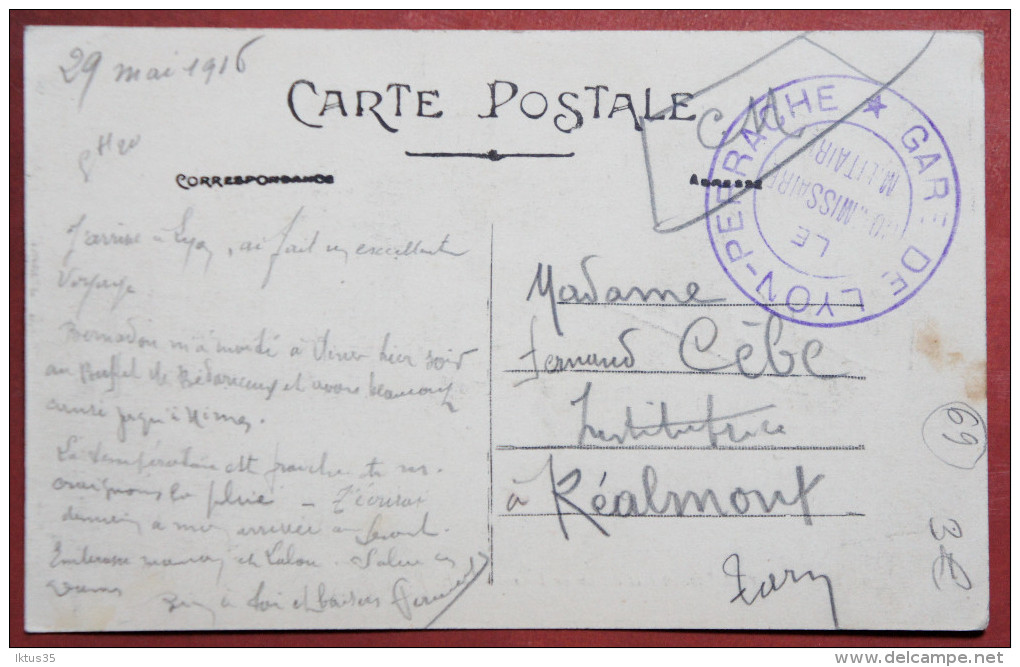 29 mai 1916
CARTE POSTALE
8 H 20
C.M.
CORRESPONDANCE
ADRESSE
GARE DE LYON-PERRACHE ★
LE
COMMISSAIRE
MILITAIRE
J'arrive à Lyon, ai fait un excellent
voyage
Bernadou m'a invité à dîner hier soir
au Buffet de Bédarieux et avons beaucoup
causé jusqu'à Nimes.
La température est fraiche et
craignons la pluie – T'écrirai
demain à mon arrivée au
Embrasse maman et Lalou.
à toi et baisers Fernand
Madame
Fernand Cèbe
Institutrice
à Réalmont
Tarn
69
3€
Iktus35
www.delcampe.net